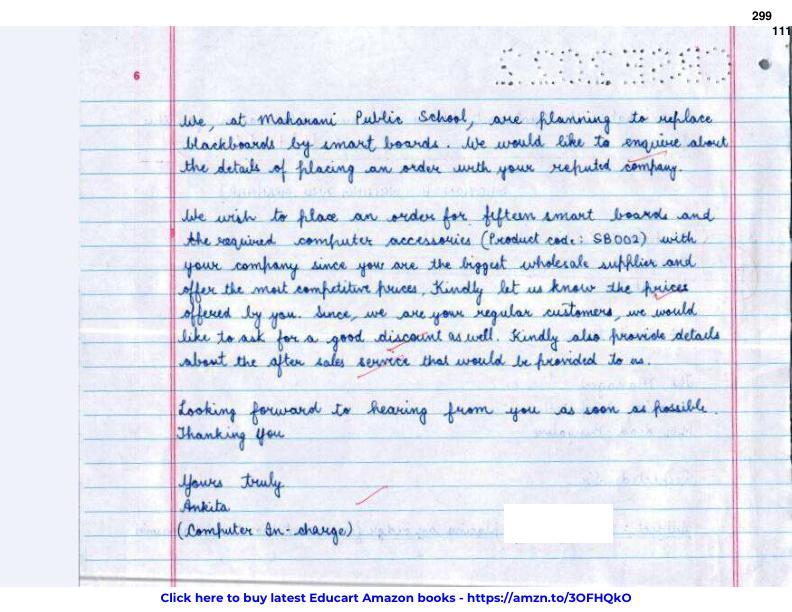 299
111
6
We, at Maharani Public School, are planning to replace
blackboards by smart boards. We would like to enquire about
the details of placing an order with your reputed company.
We wish to place an order for fifteen smart boards and
the required computer accessories (Product code: SB002) with
your company since you are the biggest wholesale supplier and
offer the most competitive prices. Kindly let us know the prices
offered by you. Since, we are your regular customers, we would
like to ask for a good discount as well. Kindly also provide details
about the after sales service that would be provided to us.
Looking forward to hearing from you as soon as possible.
Thanking you
Yours truly
Ankita
(Computer In-charge)
Click here to buy latest Educart Amazon books - https://amzn.to/3OFHQkO